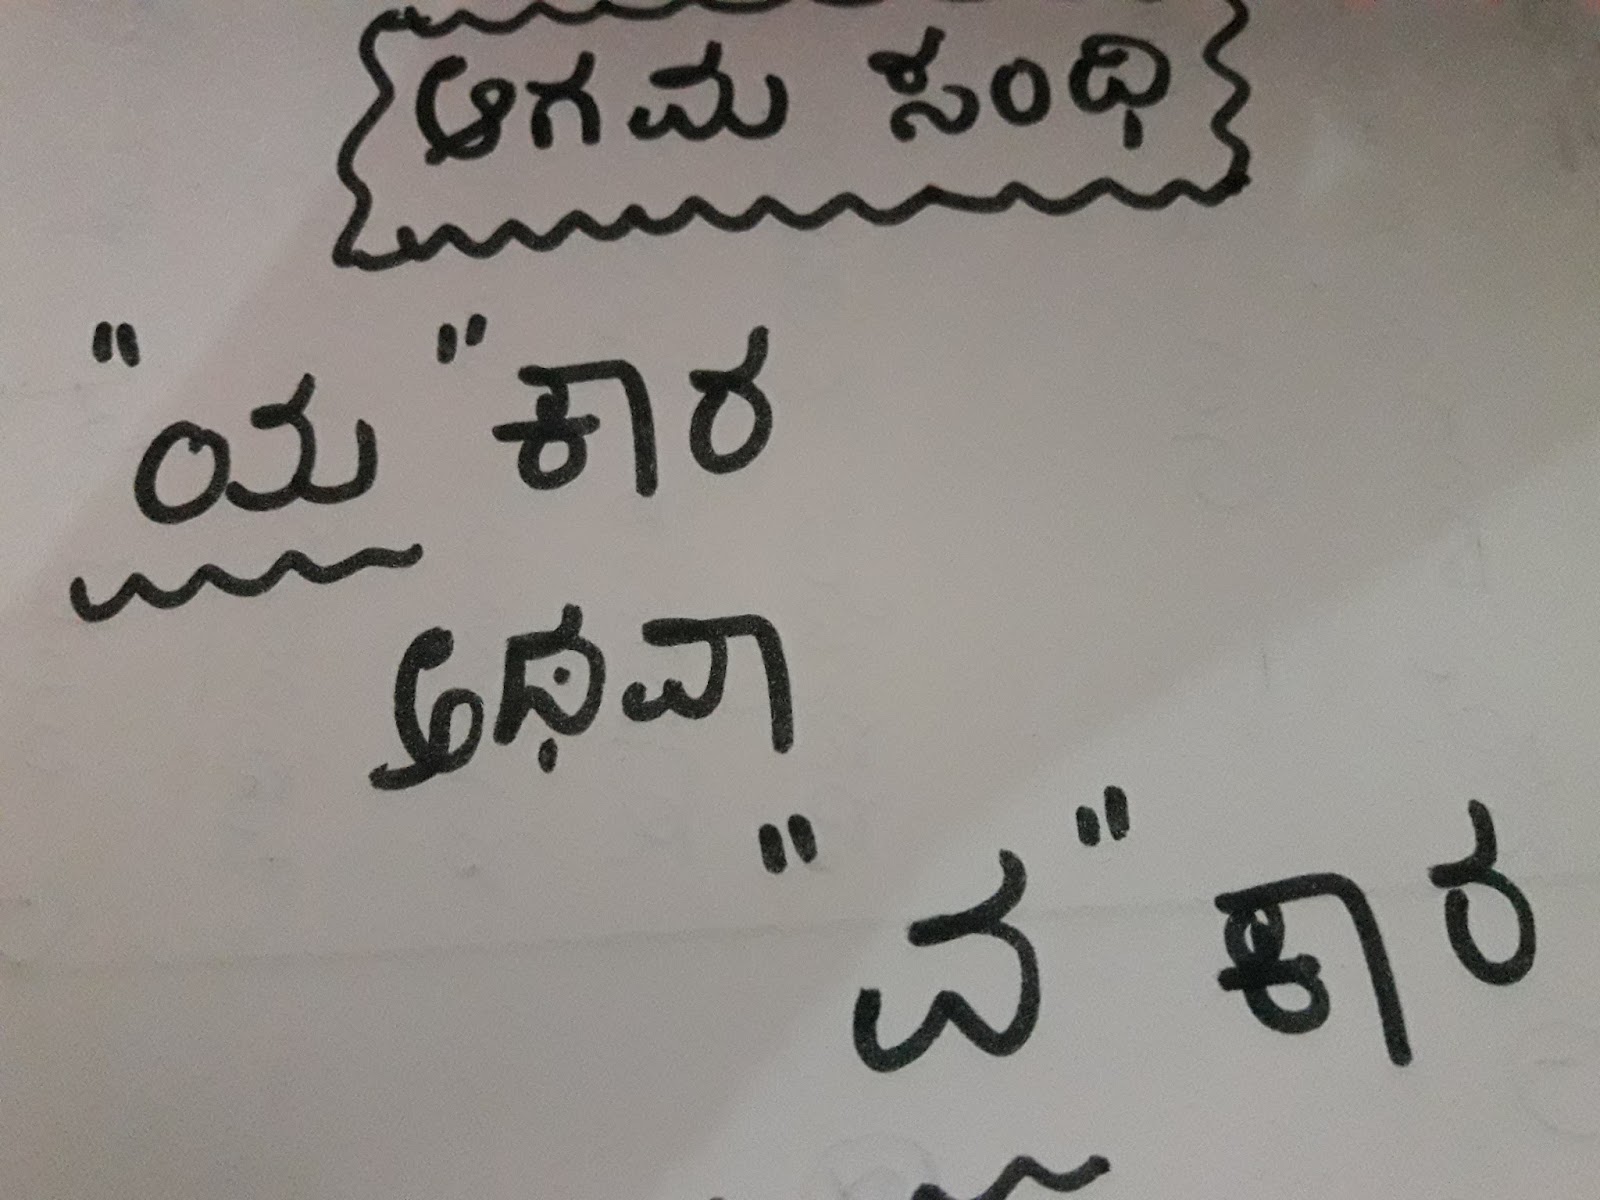 ಆಗಮ ಸಂಧಿ
"ಯ" ಕಾರ
ಅಥವಾ
"ವ" ಕಾರ